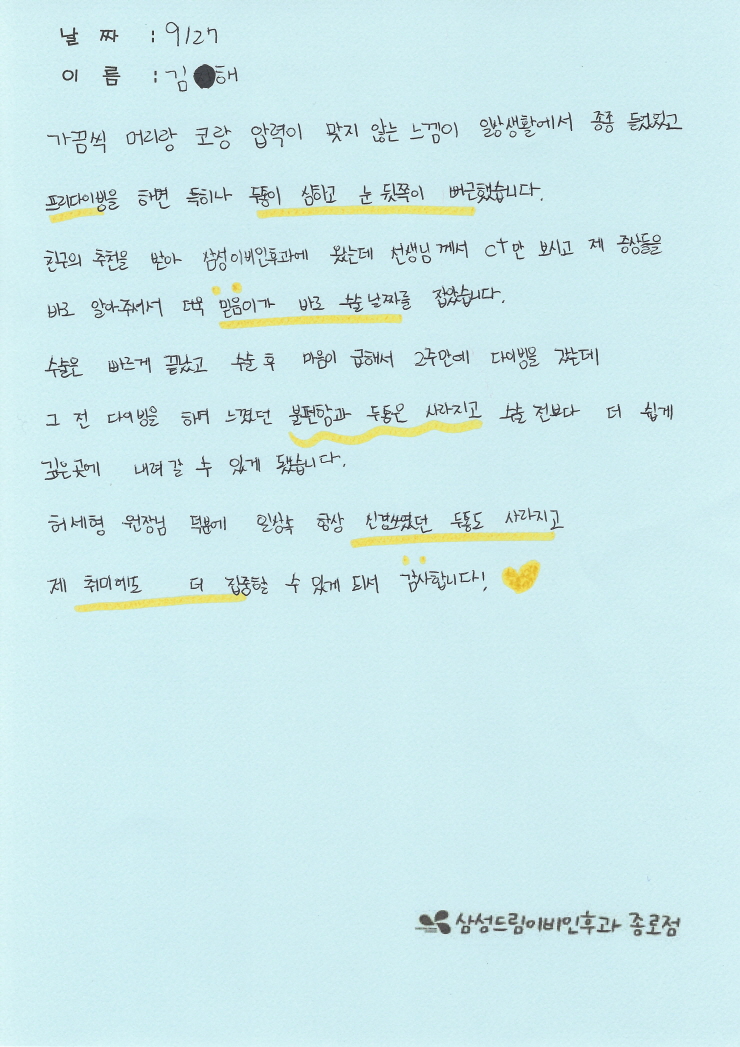 날 짜 : 9/27
이 름 : 김●해
가끔씩 머리랑 코랑 압력이 맞지 않는 느낌이 일상생활에서 종종 들었었고
프리다이빙을 하면 특히나 두통이 심하고 눈 뒷쪽이 뻐근했습니다.
친구의 추천을 받아 삼성이비인후과에 왔는데 선생님께서 CT만 보시고 제 증상들을
바로 알아주셔서 더욱 믿음이가 바로 수술날짜를 잡았습니다.
수술은 빠르게 끝났고 수술 후 마음이 급해서 2주만에 다이빙을 갔는데
그 전 다이빙을 하며 느꼈던 불편함과 두통은 사라지고 수술 전보다 더 쉽게
깊은곳에 내려갈 수 있게 됐습니다.
허세형 원장님 덕분에 일상속 항상 신경쓰였던 두통도 사라지고
제 취미에도 더 집중할 수 있게 되서 감사합니다!
삼성드림이비인후과 종로점